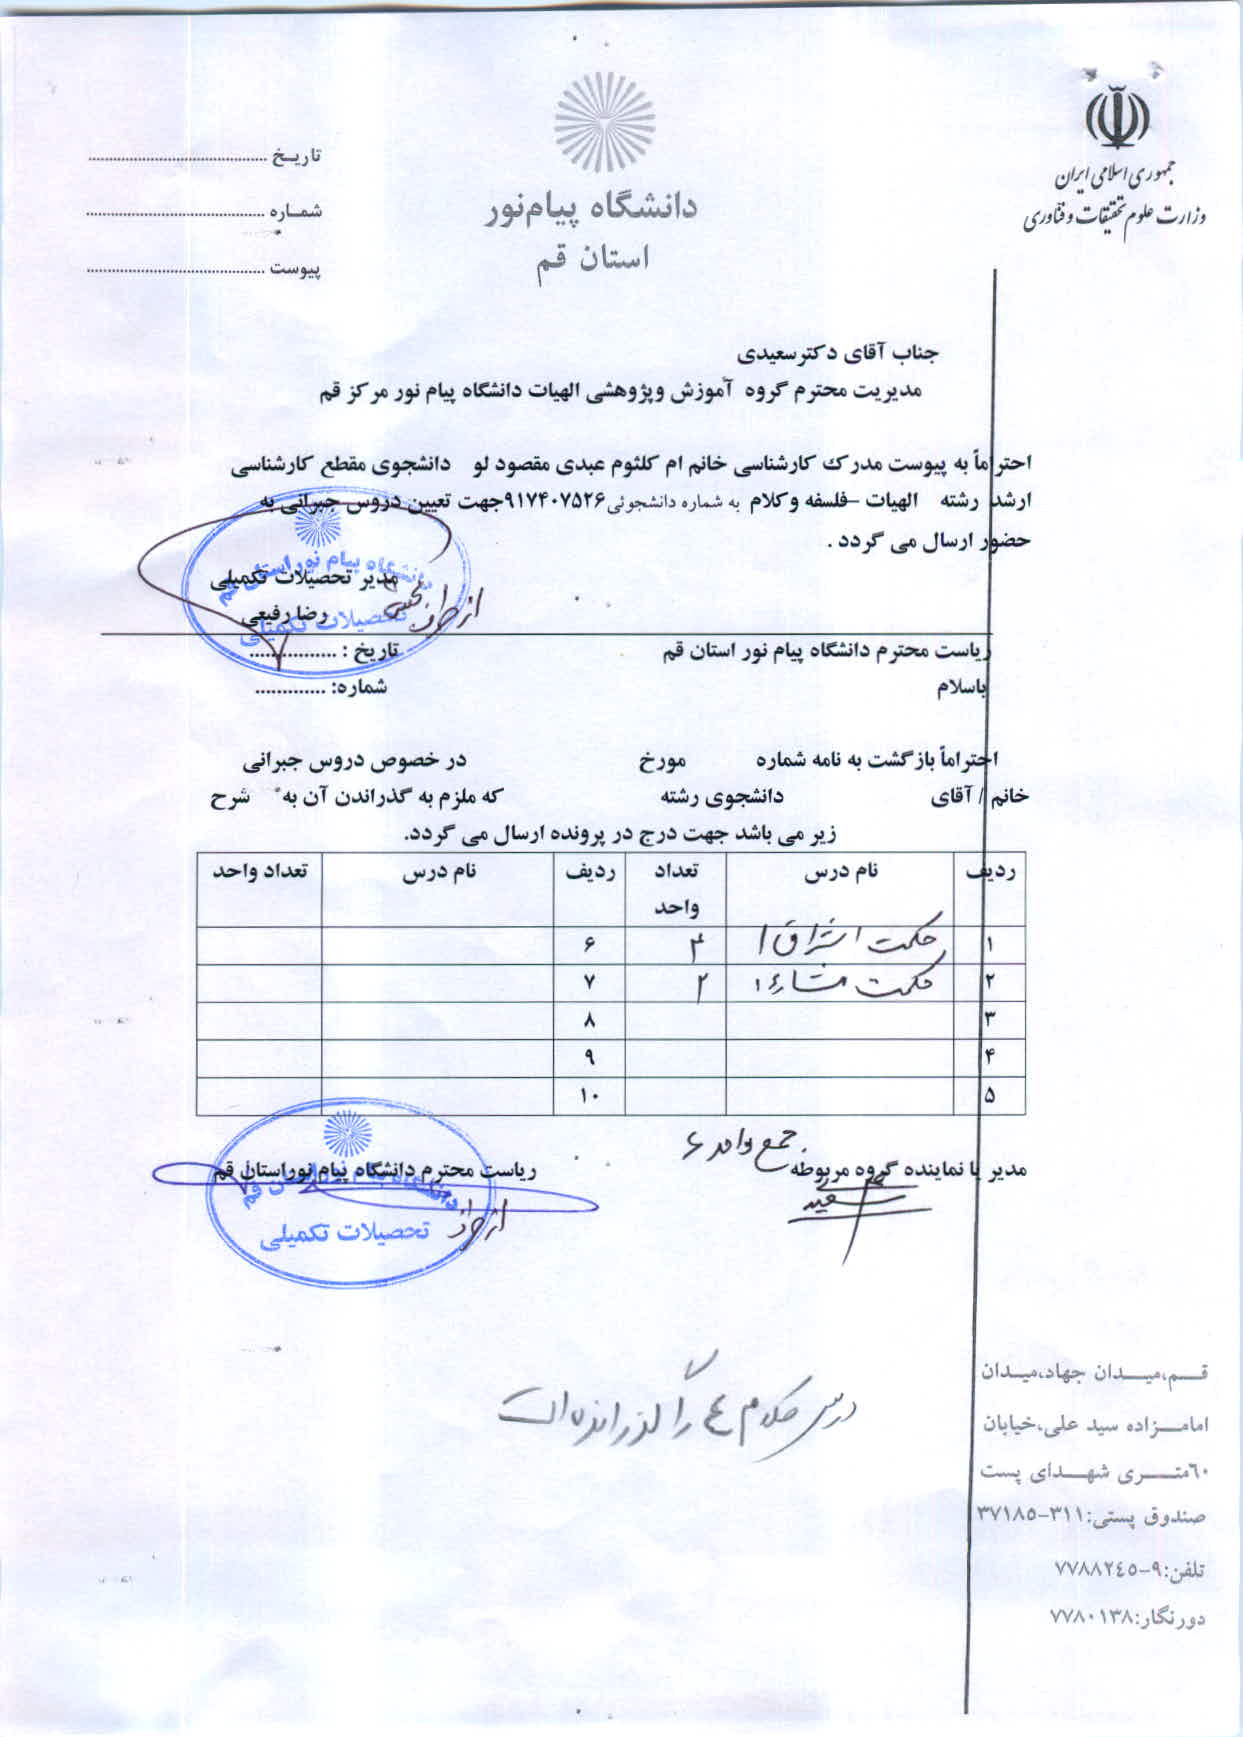 جمهوری اسلامی ایران
وزارت علوم تحقیقات و فناوری
دانشگاه پیام‌نور
استان قم
تاریـخ ........................................
شمـاره ........................................
پیوست ........................................
جناب آقای دکترسعیدی
مدیریت محترم گروه آموزش وپژوهشی الهیات دانشگاه پیام نور مرکز قم
احتراماً به پیوست مدرک کارشناسی خانم ام کلثوم عبدی مقصود لو دانشجوی مقطع کارشناسی
ارشد رشته الهیات –فلسفه وکلام به شماره دانشجوئی۹۱۷۴۰۷۵۲۶جهت تعیین دروس جبرانی به
حضور ارسال می گردد .
مدیر تحصیلات تکمیلی
رضا رفیعی
دانشگاه پیام نور استان قم
تحصیلات تکمیلی
از طرف
ریاست محترم دانشگاه پیام نور استان قم
تاریخ : ...............
باسلام
شماره: .............
احتراماً بازگشت به نامه شماره مورخ در خصوص دروس جبرانی
خانم / آقای دانشجوی رشته که ملزم به گذراندن آن به شرح
زیر می باشد جهت درج در پرونده ارسال می گردد.
ردیف نام درس تعداد واحد ردیف نام درس تعداد واحد
۱ حکمت اشراق ۱ ۶
۲ حکمت مشاء ۱ ۲ ۷
۳ ۸
۴ ۹
۵ ۱۰
جمع واحد ۶
مدیر یا نماینده گروه مربوطه
ریاست محترم دانشگاه پیام نوراستان قم
سعیدی
دانشگاه پیام نور استان قم
تحصیلات تکمیلی
از طرف
درس کلام ٤ را گذرانده است
قــم،میــدان جهاد،میـدان
امامــزاده سید علی،خیابان
٦٠متــری شهــدای پست
صندوق پستی:٣١١-٣٧١٨٥
تلفن:٩-٧٧٨٨٢٤٥
دورنگار:٧٧٨٠١٣٨